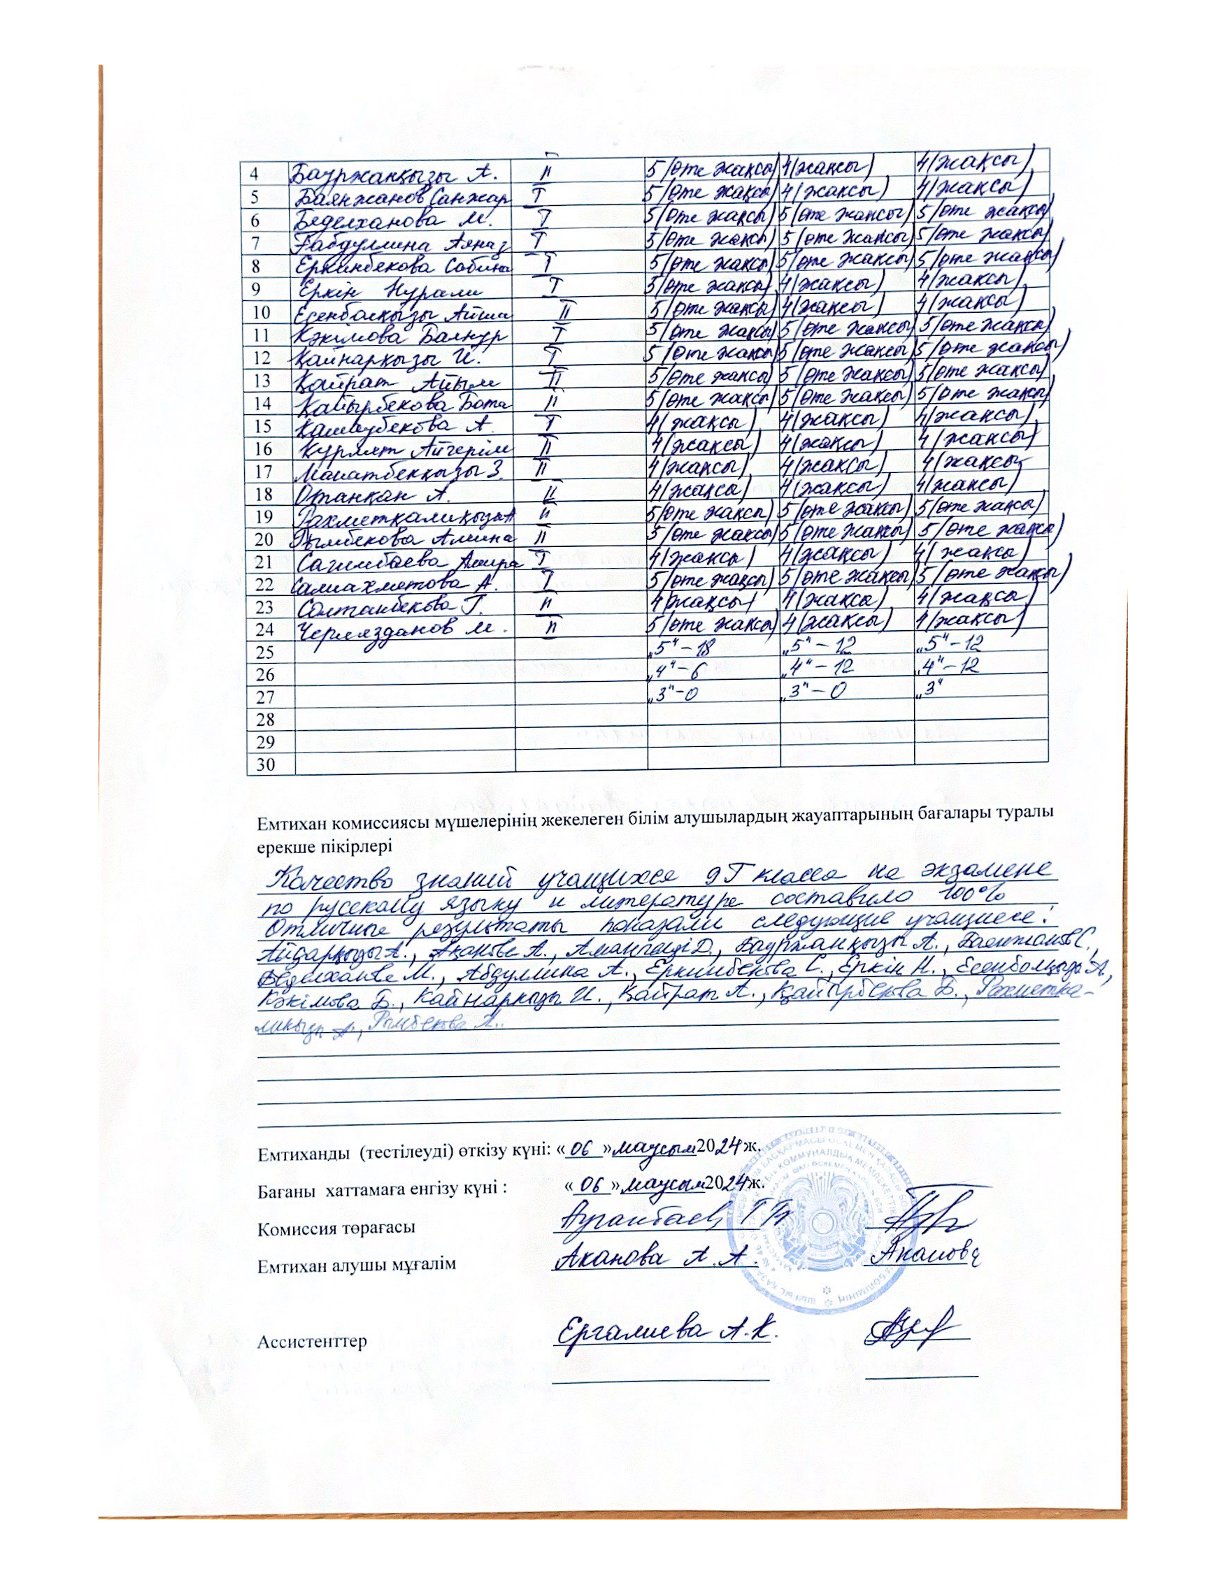 4 Бауржанқызы А. II 5(өте жақсы) 4(жақсы) 4(жақсы)
5 Баянжанов Санжар I 5(өте жақсы) 4(жақсы) 4(жақсы)
6 Беделханова М. I 5(өте жақсы) 5(өте жақсы) 5(өте жақсы)
7 Ғабдуллина Аяназ I 5(өте жақсы) 5(өте жақсы) 5(өте жақсы)
8 Еркинбекова Сабина I 5(өте жақсы) 5(өте жақсы) 5(өте жақсы)
9 Еркін Нурали I 5(өте жақсы) 4(жақсы) 4(жақсы)
10 Есенболқызы Айша II 5(өте жақсы) 4(жақсы) 4(жақсы)
11 Кәкімова Балнур I 5(өте жақсы) 5(өте жақсы) 5(өте жақсы)
12 Қайнарқызы И. I 5(өте жақсы) 5(өте жақсы) 5(өте жақсы)
13 Қайрат Айым II 5(өте жақсы) 5(өте жақсы) 5(өте жақсы)
14 Қайырбекова Бота II 5(өте жақсы) 5(өте жақсы) 5(өте жақсы)
15 А. I 4(жақсы) 4(жақсы) 4(жақсы)
16 Айгерім II 4(жақсы) 4(жақсы) 4(жақсы)
17 Манатбекқызы З. II 4(жақсы) 4(жақсы) 4(жақсы)
18 А. II 4(жақсы) 4(жақсы) 4(жақсы)
19 Рахметқалиқызы А II 5(өте жақсы) 5(өте жақсы) 5(өте жақсы)
20 Рымбекова Амина II 5(өте жақсы) 5(өте жақсы) 5(өте жақсы)
21 Сагимбаева Амира I 4(жақсы) 4(жақсы) 4(жақсы)
22 Салиахметова А. I 5(өте жақсы) 5(өте жақсы) 5(өте жақсы)
23 Солтанбекова Г. II 4(жақсы) 4(жақсы) 4(жақсы)
24 М. II 5(өте жақсы) 4(жақсы) 4(жақсы)
25 „5“-18 „5“-12 „5“-12
26 „4“-6 „4“-12 „4“-12
27 „3“-0 „3“-0 „3“
28
29
30
Емтихан комиссиясы мүшелерінің жекелеген білім алушылардың жауаптарының бағалары туралы
ерекше пікірлері
Качество знаний учащихся 9Г класса на экзамене
по русскому языку и литературе составило 100%
Отличные результаты показали следующие учащиеся:
Айдарқызы А., Ақанова А., Амангелді Д., Бауржанқызы А., Баянжанов С.,
Беделханова М., Абдуллина А., Еркинбекова С., Еркін Н., Есенболқызы А,
Кәкімова Б., Кайнарқызы И., Қайрат А., Қайырбекова Б., Рахметқа-
лиқызы А., Рымбекова А..
Емтиханды (тестілеуді) өткізу күні: «06» маусым 2024 ж.
Бағаны хаттамаға енгізу күні : «06» маусым 2024 ж.
Комиссия төрағасы
Емтихан алушы мұғалім Аканова А. А. Аканова
Ассистенттер Ергалиева А.К.